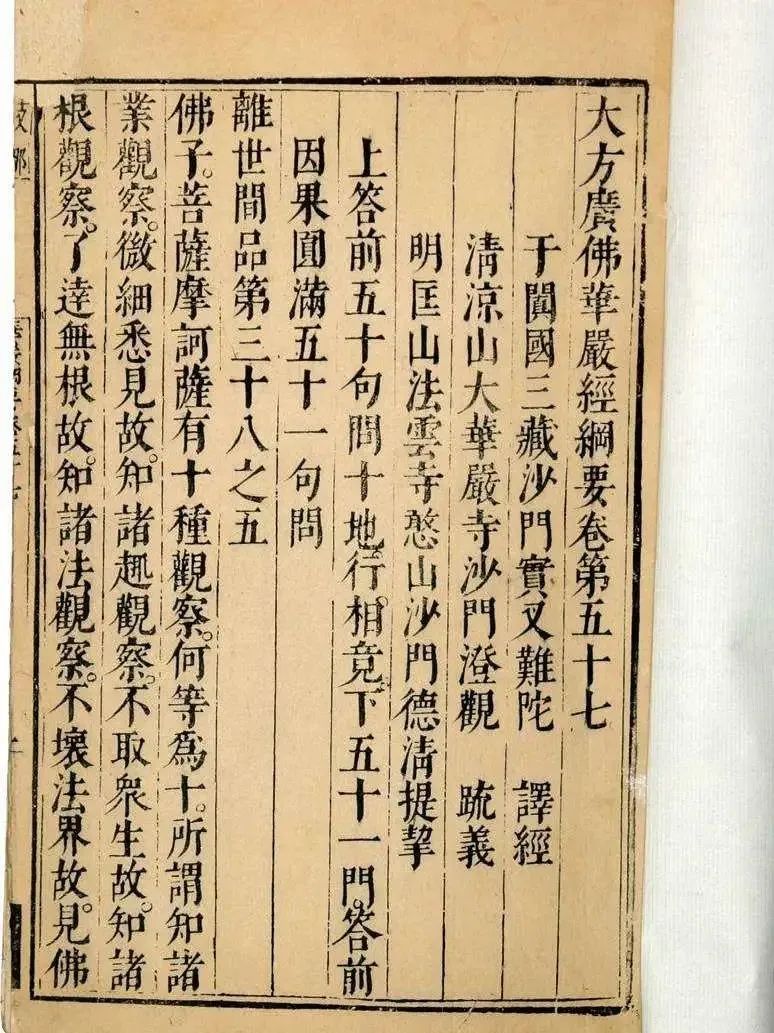 大方廣佛華嚴經綱要卷第五十七
于闐國三藏沙門實叉難陀 譯經
清涼山大華嚴寺沙門澄觀 疏義
明匡山法雲寺憨山沙門德清提挈
上答前五十句問十地行。相竟。下五十一門。答前
因果圓滿五十一句問
離世間品第三十八之五
佛子。菩薩摩訶薩有十種觀察。何等爲十。所謂知諸
業觀察。微細悉見故。知諸趣觀察。不取衆生故。知諸
根觀察。了達無根故。知諸法觀察。不壞法界故。見佛